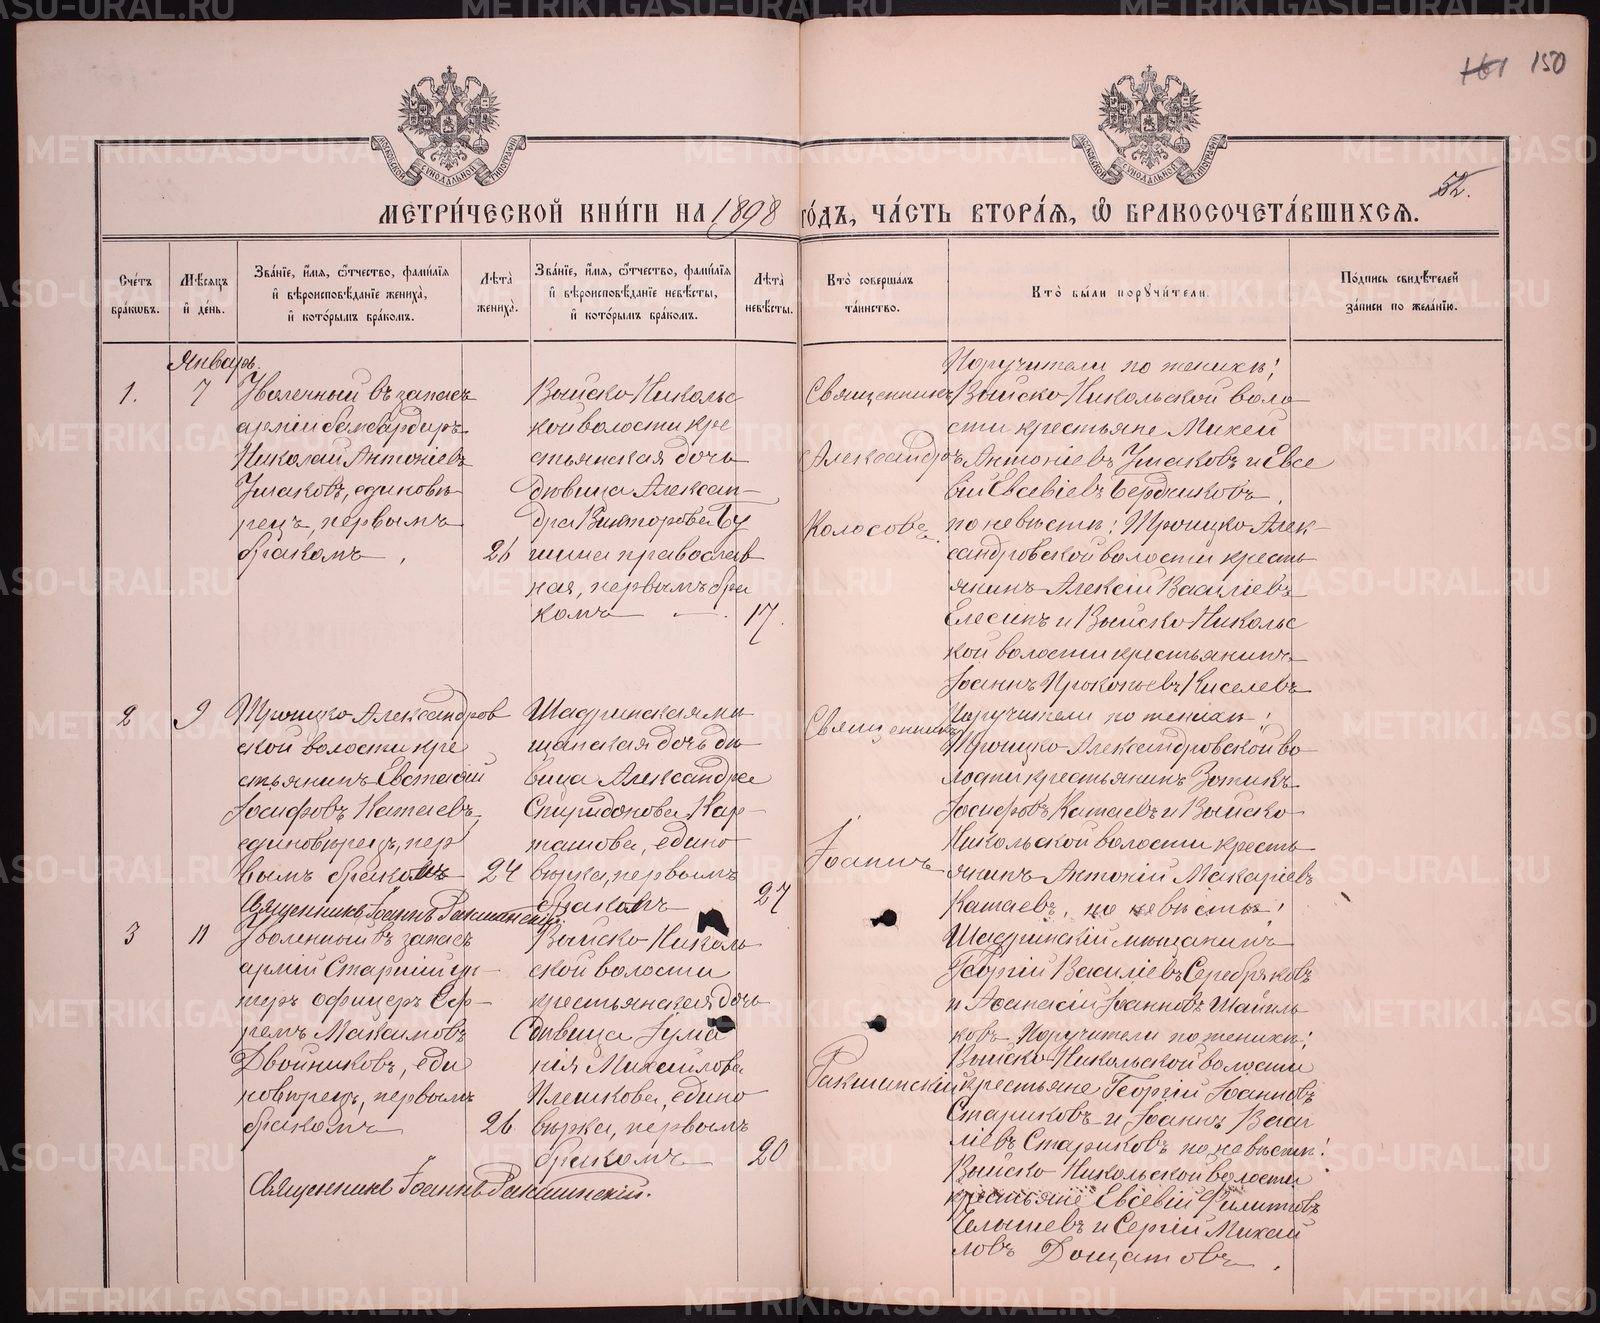 161 150
МОСКОВСКОЙ СѴНОДАЛЬНОЙ ТИПОГРАФІИ
МОСКОВСКОЙ СѴНОДАЛЬНОЙ ТИПОГРАФІИ
52.
МЕТРИ́ЧЕСКОЙ КНИ́ГИ НА 1898 ГО́ДЪ, ЧА́СТЬ ВТОРА́Я, Ѽ БРАКОСОЧЕТА́ВШИХСЯ.
Сче́тъ бра́ковъ.
Мѣ́сяцъ и҆ де́нь.
Зва́нїе, и҆́мя, ѻ҆́тчество, фами́лїя и҆ вѣроисповѣ́данїе жениха̀, и҆ кото́рымъ бра́комъ.
Лѣта̀ жениха̀.
Зва́нїе, и҆́мя, ѻ҆́тчество, фами́лїя и҆ вѣроисповѣ́данїе невѣ́сты, и҆ кото́рымъ бра́комъ.
Лѣта̀ невѣ́сты.
Кто̀ соверша́лъ та́инство.
Кто̀ бы́ли порꙋчи́тели.
По́дпись свидѣ́телей за́писи по жела́нїю.
Январь.
1.
7
Уволенный въ запасъ
арміи бомбардиръ
Николай Антоніевъ
Ушаковъ, единовѣ
рецъ, первымъ
бракомъ
26
Выйско Николь
ской волости кре
стьянская дочь
дѣвица Алексан-
дра Викторова
православ
ная, первымъ бра
комъ
17.
Священникъ
Александръ
Колосовъ.
Поручители по женихѣ:
Выйско Никольской воло
сти крестьяне Михей
Антоніевъ Ушаковъ и Евсе
вій Евсевіевъ Бердниковъ.
по невѣстѣ: Троицко Алек-
сандровской волости кресть
янинъ Алексій Василіевъ
Елесинъ и Выйско Николь
ской волости крестьянинъ
Іоаннъ Прокопьевъ Киселевъ
2
9
Троицко Александров
ской волости кре
стьянинъ Евстафій
Іосифовъ Катаевъ,
единовѣрецъ, пер
вымъ бракомъ
24
Священникъ Іоаннъ Ракшинскій
Шадринская мѣ
щанская дочь дѣ
вица Александра
Спиридонова Кар-
ташова, едино
вѣрка, первымъ
бракомъ
27
Священникъ
Іоаннъ
Ракшинскій
Поручители по женихѣ:
Троицко Александровской во
лости крестьянинъ Зотикъ
Іосифовъ Катаевъ и Выйско
Никольской волости кресть
янинъ Антоній Макаріевъ
Катаевъ, по невѣстѣ:
Шадринскій мѣщанинъ
Георгій Василіевъ Серебряковъ
и Аѳанасій Іоанновъ
3
11
Уволенный въ запасъ
арміи Старшій ун-
теръ офицеръ Еф-
ремъ Максимовъ
Двойниковъ, еди
новѣрецъ, первымъ
бракомъ
26
Священникъ Іоаннъ Ракшинскій.
Выйско Николь
ской волости
крестьянская дочь
дѣвица Іулiа
нія Михаилова
Плешкова, едино
вѣрка, первымъ
бракомъ
20
Поручители по женихѣ:
Выйско Никольской волости
крестьяне Георгій Іоанновъ
Стариковъ и Іоаннъ Васи
ліевъ Стариковъ по невѣстѣ:
Выйско Никольской волости
крестьяне Евсевій Филипповъ
Челышевъ и Сергій Михай
ловъ Дощатовъ.
METRIKI.GASO-URAL.RU